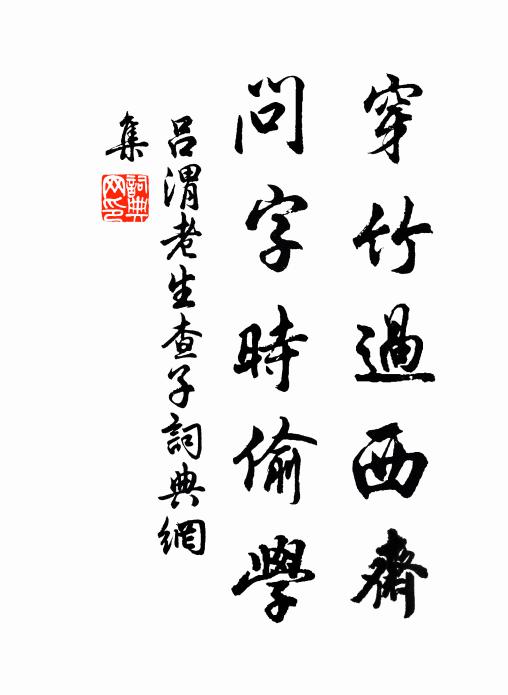 穿竹過西齋
問字時偷學
呂渭老生查子詞典網
集
詞典網印